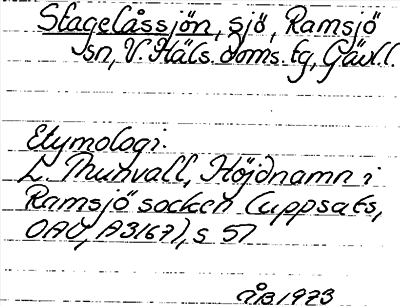 Stagelåssjön, sjö, Ramsjö
sn, V. Häls. doms. tg, Gävl. l.
Etymologi.
L. Munvall, Höjdnamn i
Ramsjö socken (uppsats,
OAU, A3167), s 57
ÅB 1973